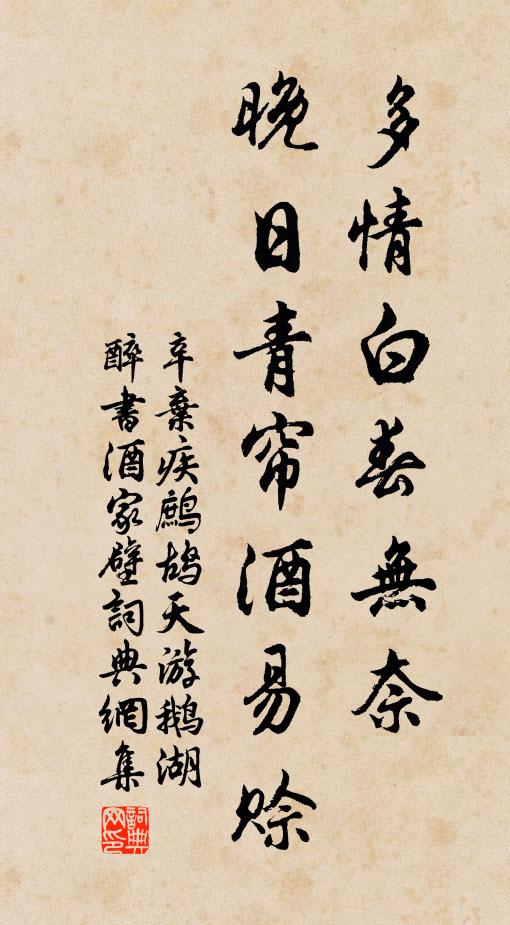 多情白春無奈
晚日青帘酒易賒
辛棄疾鷓鴣天游鵝湖
醉書酒家壁詞典網集
詞典网印